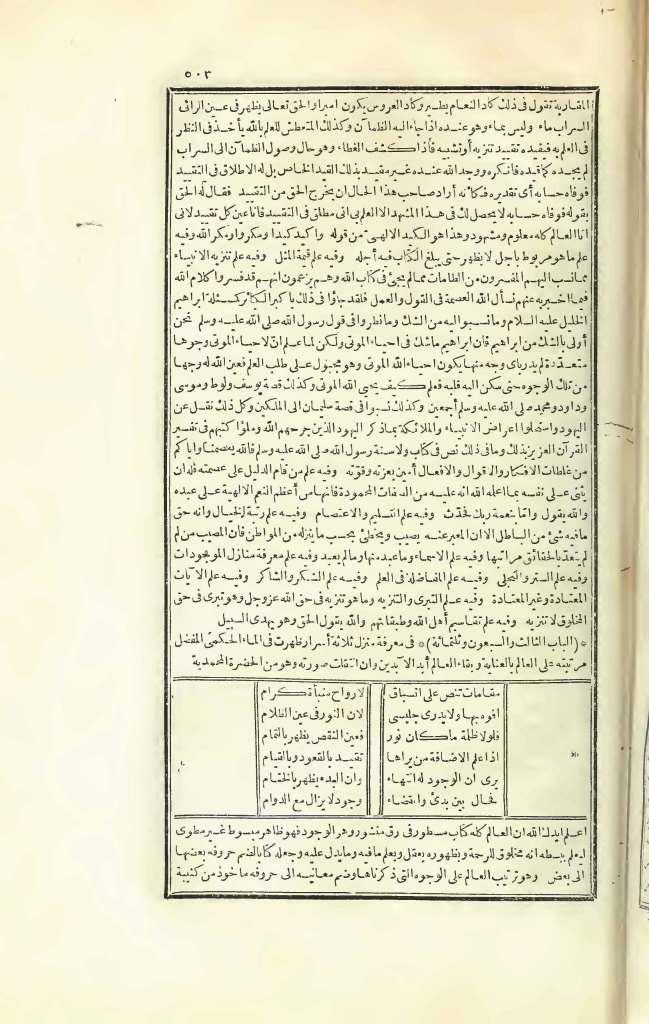 ٥٠٣
المقاربة تقول فى ذلك كاد النعام يطير وكاد العروس يكون أميرا والحق تعالى يظهر فى عين الرائى
السراب ماء وليس بماء وهو عنده اذا جاء اليه الظمآن وكذلك المتعطش للعلم بالله يأخذ فى النظر
فى العلم به فيقيده تقييد تنزيه أو تشبيه فاذا كشف الغطاء وهو حال وصول الظمآن الى السراب
لم يجده كما قيده فأنكره ووجد الله عنده غير مقيد بذلك التقيد الخاص بل له الاطلاق فى التقييد
فوفاه حسابه أى تقديره فكأنه أراد صاحب هذا الحال ان يخرج الحق من التقييد فقال له الحق
بقوله فوفاه حسابه لا يحصل لك فى هذا المشهد الا العلم بى انى مطلق فى التقييد فأنا عين كل تقييد لانى
انا العالم كله معلوم ومشهود وهذا هو الكيد الالهى من قوله وأكيد كيدا ومكروا ومكر الله وفيه
علم ما هو مربوط بأجل لا يظهر حتى يبلغ الكتاب فيه أجله وفيه علم قيمة المثل وفيه علم تنزيه الانبياء
مما نسب اليهم المفسرون من الطامات مما لم يجئ فى كتاب الله وهم يزعمون انهم قد فسروا كلام الله
فيما أخبر به عنهم نسأل الله العصمة فى القول والعمل فلقد جاؤا فى ذلك بأكبر الكبائر كمسئلة ابراهيم
الخليل عليه السلام وما نسبوا اليه من الشك وما نظروا فى قول رسول الله صلى الله عليه وسلم نحن
أولى بالشك من ابراهيم فان ابراهيم ما شك فى احياء الموتى ولكن لما علم ان لاحياء الموتى وجوها
متعددة لم يدر بأى وجه منها يكون احياء الله الموتى وهو مجبول على طلب العلم فعين الله له وجها
من تلك الوجوه حتى سكن اليه قلبه فعلم كيف يحيى الله الموتى وكذلك قصة يوسف ولوط وموسى
وداود ومحمد صلى الله عليه وسلم أجمعين وكذلك نسبوا فى قصة سليمان الى الملكين وكل ذلك نقل عن
اليهود واستحلوا اعراض الانبياء والملائكة بما ذكر اليهود الذين جرحهم الله وملؤا كتبهم فى تفسير
القرآن العزيز بذلك وما فى ذلك نص فى كتاب ولا سنة رسول الله صلى الله عليه وسلم فالله يعصمنا واياكم
من غلطات الافكار والاقوال والافعال آمين بعزته وقوته وفيه علم من قام الدليل على عصمته فله ان
يثنى على نفسه بما أعلمه الله انه عليه من الصفات المحمودة فانها من أعظم النعم الالهية على عبده
والله يقول واما بنعمة ربك فحدث وفيه علم التسليم والاعتصام وفيه علم رتبة الخيال وانه حق
ما فيه شئ من الباطل الا ان المعبر عنه يصيب ويخطئ بحسب ما ينزله من المواطن فان المصيب من لم
يتعد بالحقائق مراتبها وفيه علم الاسماء وما عبد منها وما لم يعبد وفيه علم معرفة منازل الموجودات
وفيه علم الستر والتجلى وفيه علم المفاضلة فى العلم وفيه علم الشكر والشاكر وفيه علم الآيات
المعتادة وغير المعتادة وفيه علم التبرى والتنزيه وما هو تنزيه فى حق الله عز وجل وهو تبرى فى حق
المخلوق لا تنزيه وفيه علم تقاسيم أهل الله وطبقاتهم والله يقول الحق وهو يهدى السبيل
* (الباب الثالث والسبعون وثلثمائة) * فى معرفة منزل ثلاثة أسرار ظهرت فى الماء الحكمى المفضل
مرتبته على العالم بالعناية وبقاء العالم أبد الآبدين وان انتقلت صورته وهو من الحضرة المحمدية
مقامات تنص على اتساق لارواح منبأة كرام
افوه بها ولا يدرى جليسى لان النور فى عين الظلام
فلولا ظلمة ما كان نور فعين النقص يظهر بالتمام
اذا علم الاضافة من يراها تقيد بالقعود وبالقيام
يرى ان الوجود له انتهاء وان البدء يظهر بالختام
فحال بين بدئ وانقضاء وجود لا يزال مع الدوام
اعلم ايدك الله ان العالم كله كتاب مسطور فى رق منشور وهو الوجود فهو ظاهر مبسوط غير مطوى
ليعلم ببسطه انه مخلوق للرحمة وبظهوره يعقل ويعلم ما فيه وما يدل عليه وجعله كتابا لضم حروفه بعضها
الى بعض وهو ترتيب العالم على الوجوه التى ذكرناها وضم معانيه الى حروفه مأخوذ من كتيبة